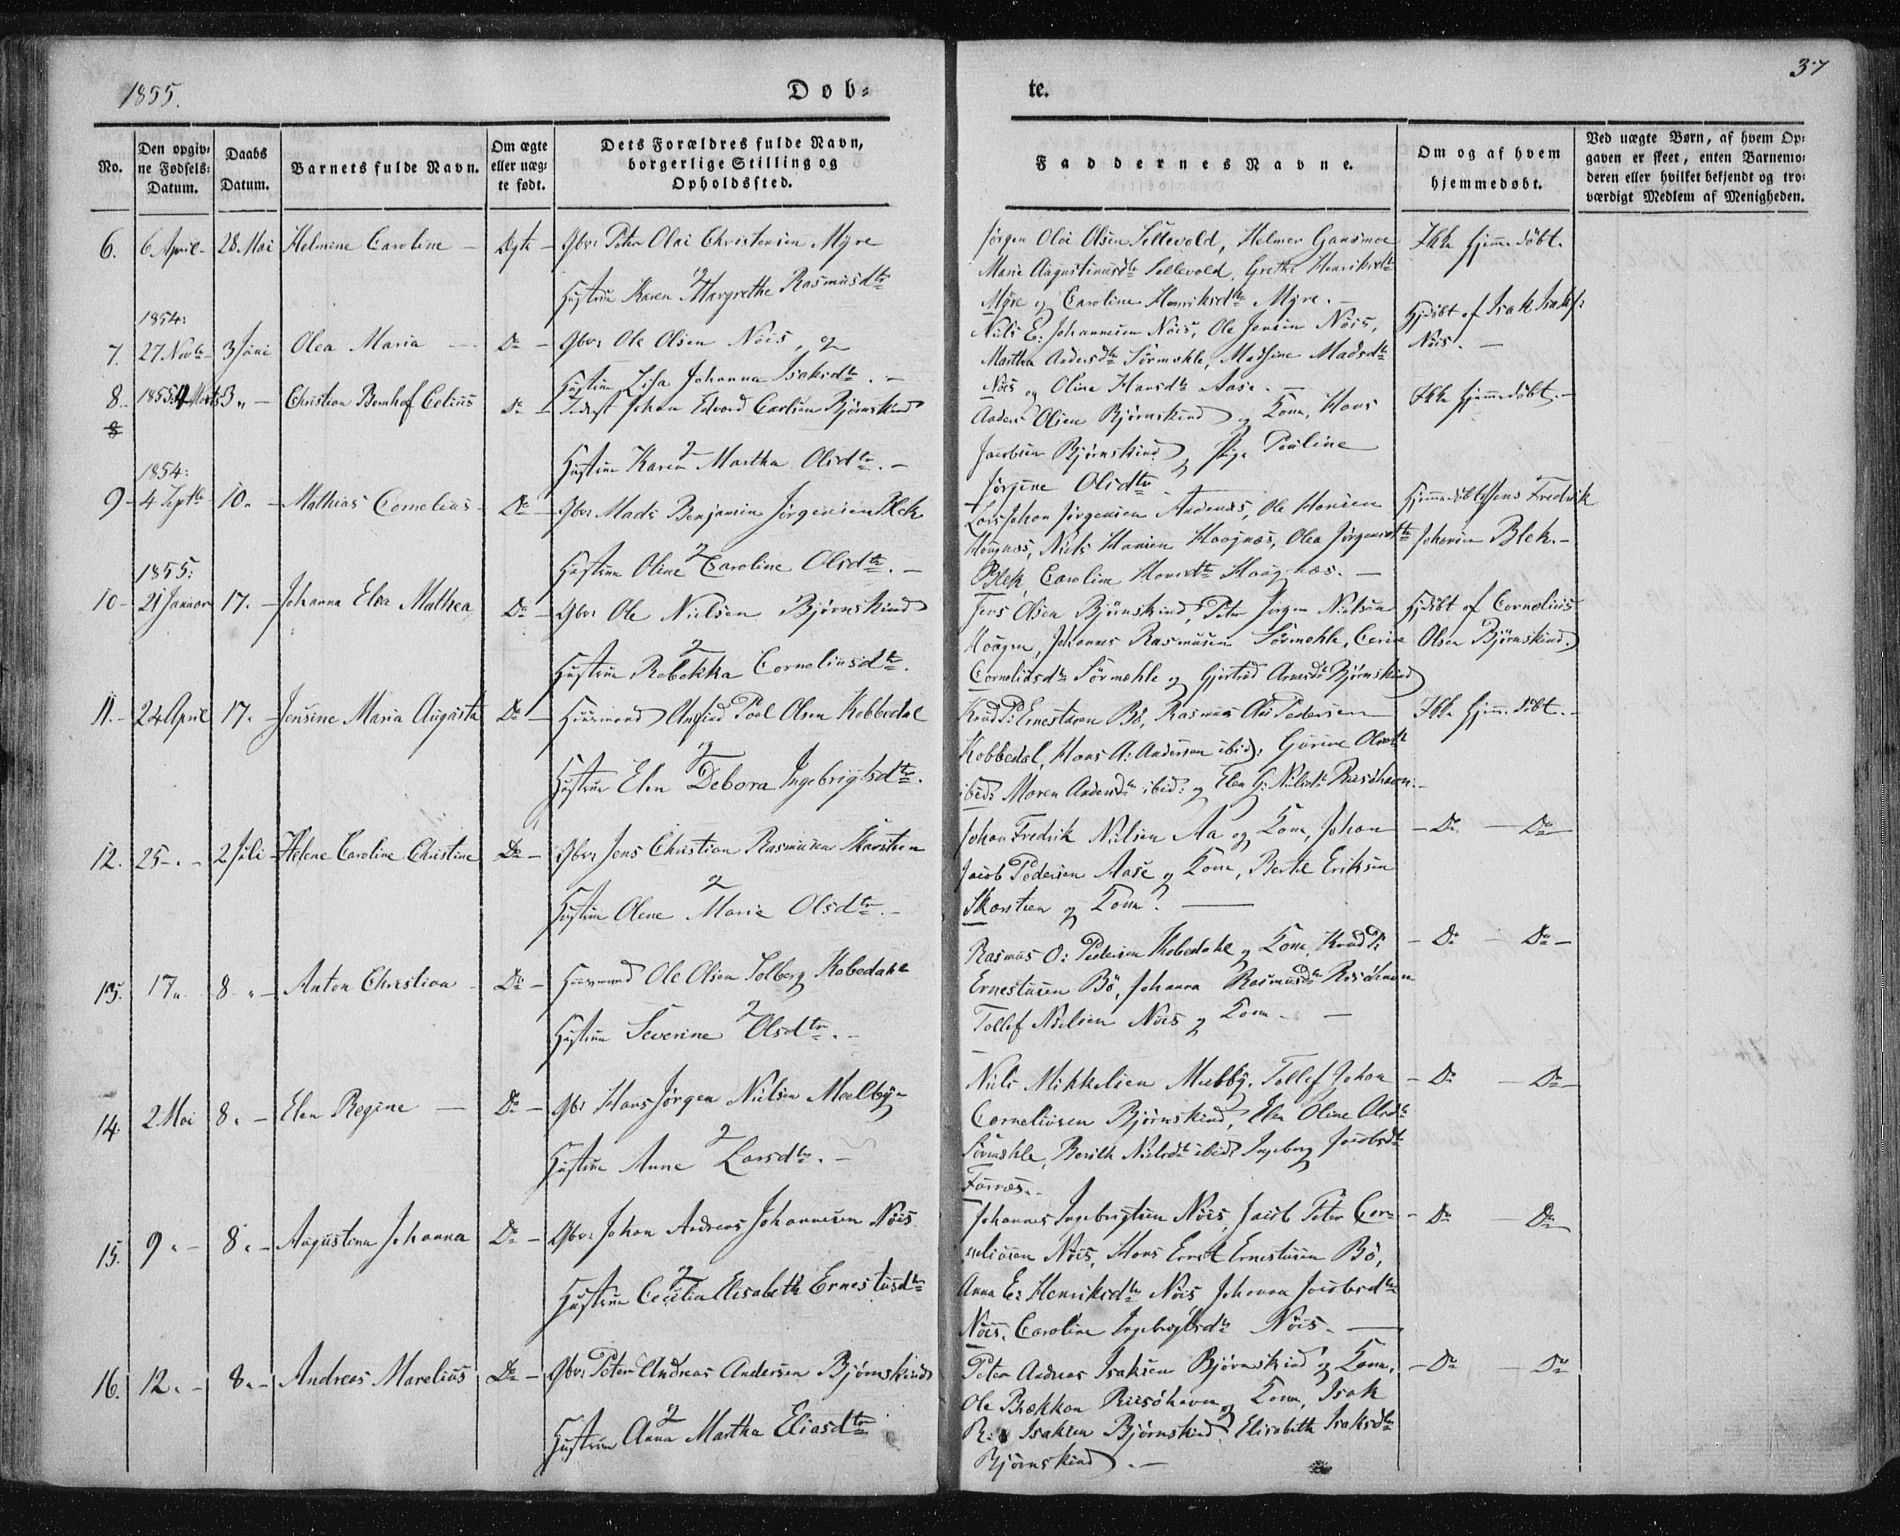 1855.
Døb-
te.
37
No.
Den opgiv-
ne Fødsels-
Datum.
Daabs
Datum.
Barnets fulde Navn.
Om ægte
eller uæg-
te født.
Dets Forældres fulde Navn,
borgerlige Stilling og
Opholdssted.
Faddernes Navne.
Om og af hvem
hjemmedøbt.
Ved uægte Børn, af hvem Op-
gaven er skeet, enten Barnemo-
deren eller hvilket bekjendt og tro-
værdigt Medlem af Menigheden.
6. 6 April - 28. Mai Helmine Caroline - Ægte - Gbr: Peter Olai Christensen Myre
og
Hustru Karen Margrethe Rasmusdtr
Jørgen Olai Olsen Sellevold, Helmer Gansmoe
Marie Augustinusdtr Sellevold, Grethe Henriksdtr
Myre og Caroline Henriksdtr Myre. -
Ikke hjemmedøbt.
1854:
7. 27 Novbr 3 Juni Olea Maria - Do - Gbr: Ole Olsen Nöis, og
Hustru Lisa Johanna Isaksdtr. -
Niels E: Johannesen Nöis, Ole Jensen Nöis,
Martha Andersdtr Sörmehle, Madsine Madsdtr
Nöis og Oline Hansdtr Aase. -
Hjdöbt af Isak Isaks:
Nöis. -
8. 1855: 4 Marts 3 " - Christian Bernhof Celius Do - Inderst Johan Edvard Carlsen Bjørnskind
8
og
Hustru Karen Martha Olsdtr. -
Anders Olsen Bjørnskind og Kone, Hans
Jacobsen Bjørnskind, og Pige Pauline
Jørgine Olsdtr
Ikke hjemmedøbt. -
1854:
9 - 4 Septbr 10. " - Mathias Cornelius - Do - Gbr: Mads Benjamin Jørgensen Blek
og
Hustru Oline Caroline Olsdtr. -
Lars Johan Jørgensen Andenæs, Ole Hansen
Haugnæs, Niels Hansen Haagnæs, Olea Jørgensdtr
Blek, Caroline Hansdtr Haagnæs. -
Hjemmedøbt af Jens Fredrik
Johansen Blek. -
1855:
10 - 21 Januar 17. - Johanna Elea Mathea Do - Gbr: Ole Nielsen Bjørnskind
og
Hustru Rebekka Corneliusdtr.
Jens Olsen Bjørnskind, Peter Jørgen Nielsen
Haagen, Johannes Rasmussen Sörmehle,
Corneliusdtr Sörmehle og Gjertrud Arnesdtr Bjørnskind
Hjdöbt af Cornelius
Olsen Bjørnskind.
11. - 24 April 17. " Jensine Maria Augusta Do - Huusmand Poel Olsen Kobbedal
og
Hustru Elen Debora Ingebrigtsdtr.
Knud P: Ernestusen Bö, Rasmus Olai Pedersen
Kobbedal, Hans A: Andersen ibid: Gurine Olsdtr
ibid: Maren Andersdtr ibid: og Elen G: Nielsdtr Risöhavn. -
Ikke hjemmedøbt. -
12. 25 - " - 2 Juli - Helene Caroline Christine Do - Gbr: Jens Christian Rasmussen Skarstien
og
Hustru Olene Marie Olsdtr. -
Johan Fredrik Nielsen Aa og Kone, Johan
Jacob Pedersen Aase og Kone, Berthe Eriksen
Skarstien og Kone. -
- Do - Do -
13. 17 " 8 " - Anton Christian - Do - Huusmand Ole Olsen Solberg Kobedahl
og
Hustru Severine Olsdtr. -
Rasmus O: Pedersen Kobedahl og Kone, Knud P:
Ernestusen Bö, Johanna Rasmusdtr Risöhavn
Tollef Nielsen Nöis og Kone. -
- Do - Do -
14. 2 Mai 8. - Elen Regine - Do - Gbr: Hans Jørgen Nielsen Meelbye
og
Hustru Anne Larsdtr. -
Niels Mikkelsen Meelby, Tollef Johan
Corneliusen Bjørnskind, Oline Olsdtr
Sörmehle, Nielsdtr ibid: Ingeborg Jacobsdtr
- Do - Do -
15. 9 " - 8 " - Augustina Johanna Do - Gbr: Johan Andreas Johannesen Nöis
og
Hustru Cecilia Elisabeth Ernestusdtr
Johannes Ingebrigtsen Nöis, Jacob Peter Cor-
neliusen Nöis, Hans Ernst Ernestusen Bö,
Anna E: Henriksdtr Nöis Johanna Jacobsdtr
Nöis, Caroline Ingebrigtsdtr Nöis. -
- Do - Do -
16. 12. - 8 " - Andreas Marelius Do - Gbr: Peter Andreas Andersen Bjørnskind
og
Hustru Anna Martha Eliasdtr
Peter Andreas Isaksen Bjørnskind og Kone,
Ole Brækkan Riisöhavn og Kone, Isak
R: Isaksen Bjørnskind og Elisabeth Isaksdtr
Bjørnskind. -
- Do - Do